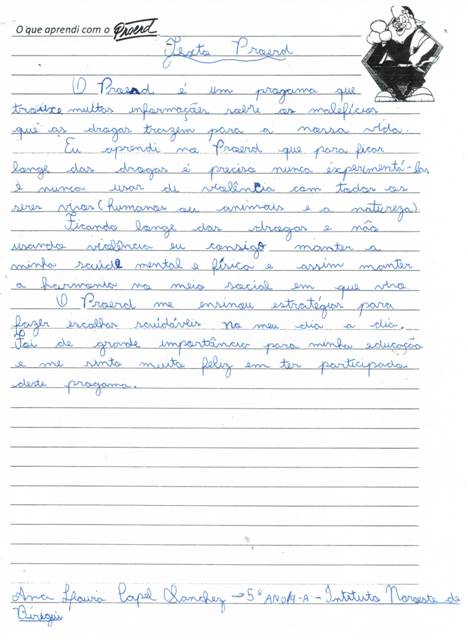 O que aprendi com o Proerd
Texto Proerd
O Proerd é um progama que
trouxe muitas informações sobre os malefícios
que as drogas trazem para a nossa vida.
Eu aprendi no Proerd que para ficar
longe das drogas é preciso nunca experimentá-las
e nunca usar de violência com todos os
seres vivos (humanos ou animais e a natureza)
Ficando longe das drogas e não
usando violência eu consigo manter a
minha saúde mental e física e assim manter
a harmonia no meio social em que vivo
O Proerd me ensinou estratégias para
fazer escolhas saúdáveis no meu dia a dia.
Foi de grande importância para minha educação
e me sinto muito feliz em ter participado
deste progama.
Ana Laura Capel Sanchez → 5º ANO/4-A - Intituto Noroeste de
Birigui